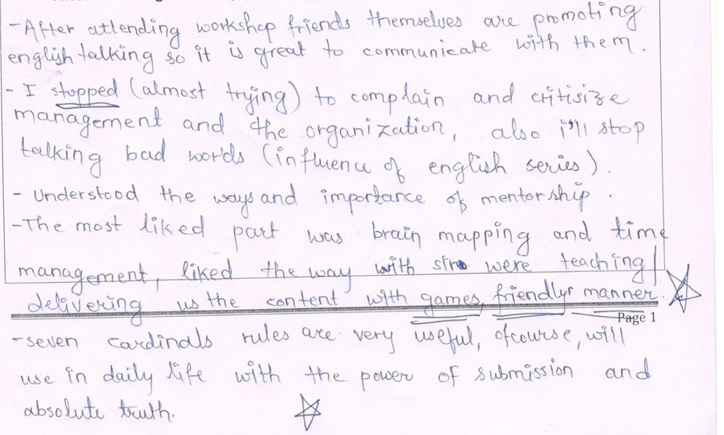 - After attending workshop friends themselves are promoting
english talking so it is great to communicate with them.
- I stopped (almost trying) to complain and critisize
management and the organization, also i'll stop
talking bad words (influence of english series).
- Understood the ways and importance of mentorship.
- The most liked part was brain mapping and time
management, liked the way with sir were teaching/
delivering us the content with games, friendly manner.
Page 1
- seven cardinals rules are very useful, ofcourse, will
use in daily life with the power of submission and
absolute truth.